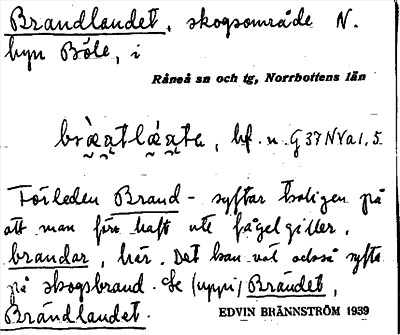 Brandlandet, skogsområde N.
byn Böle, i
Råneå sn och tg, Norrbottens län
bf. n. G 37 NVa1, 5.
Förleden Brand- syftar troligen på
att man förr haft ute fågelgiller,
brandar, här. Det kan väl också syfta
på skogsbrand. Se (uppi) Brändet,
Brändlandet.
EDVIN BRÄNNSTRÖM 1939